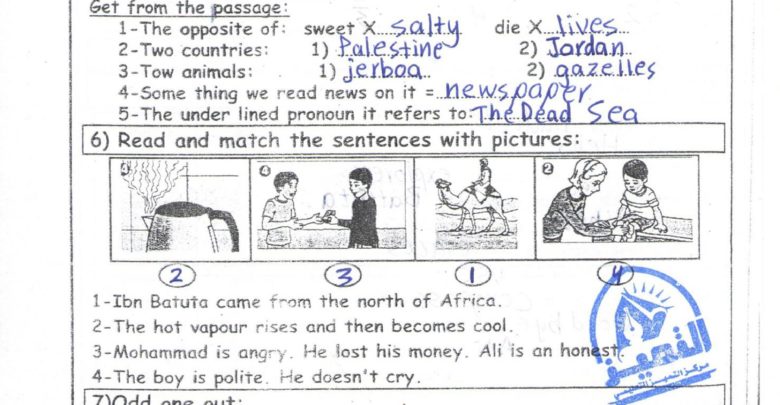 Get from the passage:
1-The opposite of: sweet X...salty. die X...lives..
2-Two countries: 1) Palestine 2) Jordan..
3-Tow animals: 1) jerboa.. 2) gazelles
4-Some thing we read news on it = newspaper
5-The under lined pronoun it refers to: The Dead Sea
6) Read and match the sentences with pictures:
4 4 2
2 3 1 4
1-Ibn Batuta came from the north of Africa.
2-The hot vapour rises and then becomes cool.
3-Mohammad is angry. He lost his money. Ali is an honest.
4-The boy is polite. He doesn't cry.
التميز
مركز التميز التعليمي
7)Odd one out: